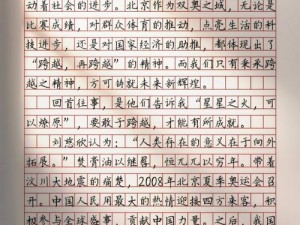 动着社会的进步。北京作为双奥之城，无论是
比赛成绩，对群众体育的推动，点亮生活的科
技进步，还是对国家经济的助推，都体现出了
“跨越，再跨越”的精神。而我们只有秉承跨
越之精神，方可铸就未来新辉煌。
回首往事，是他们告诉我“星星之火，可
以燎原”，要敢于跨越，才能有所成就。
刘慈欣认为：“人类存在的意义在于向外
拓展。”焚膏油以继晷，恒兀兀以穷年。带着
汶川大地震的痛楚，2008年北京夏季奥运会召
开。中国人民用最大的热情迎接四方来客，积
极参与全球盛事，贡献中国力量。之后，我国